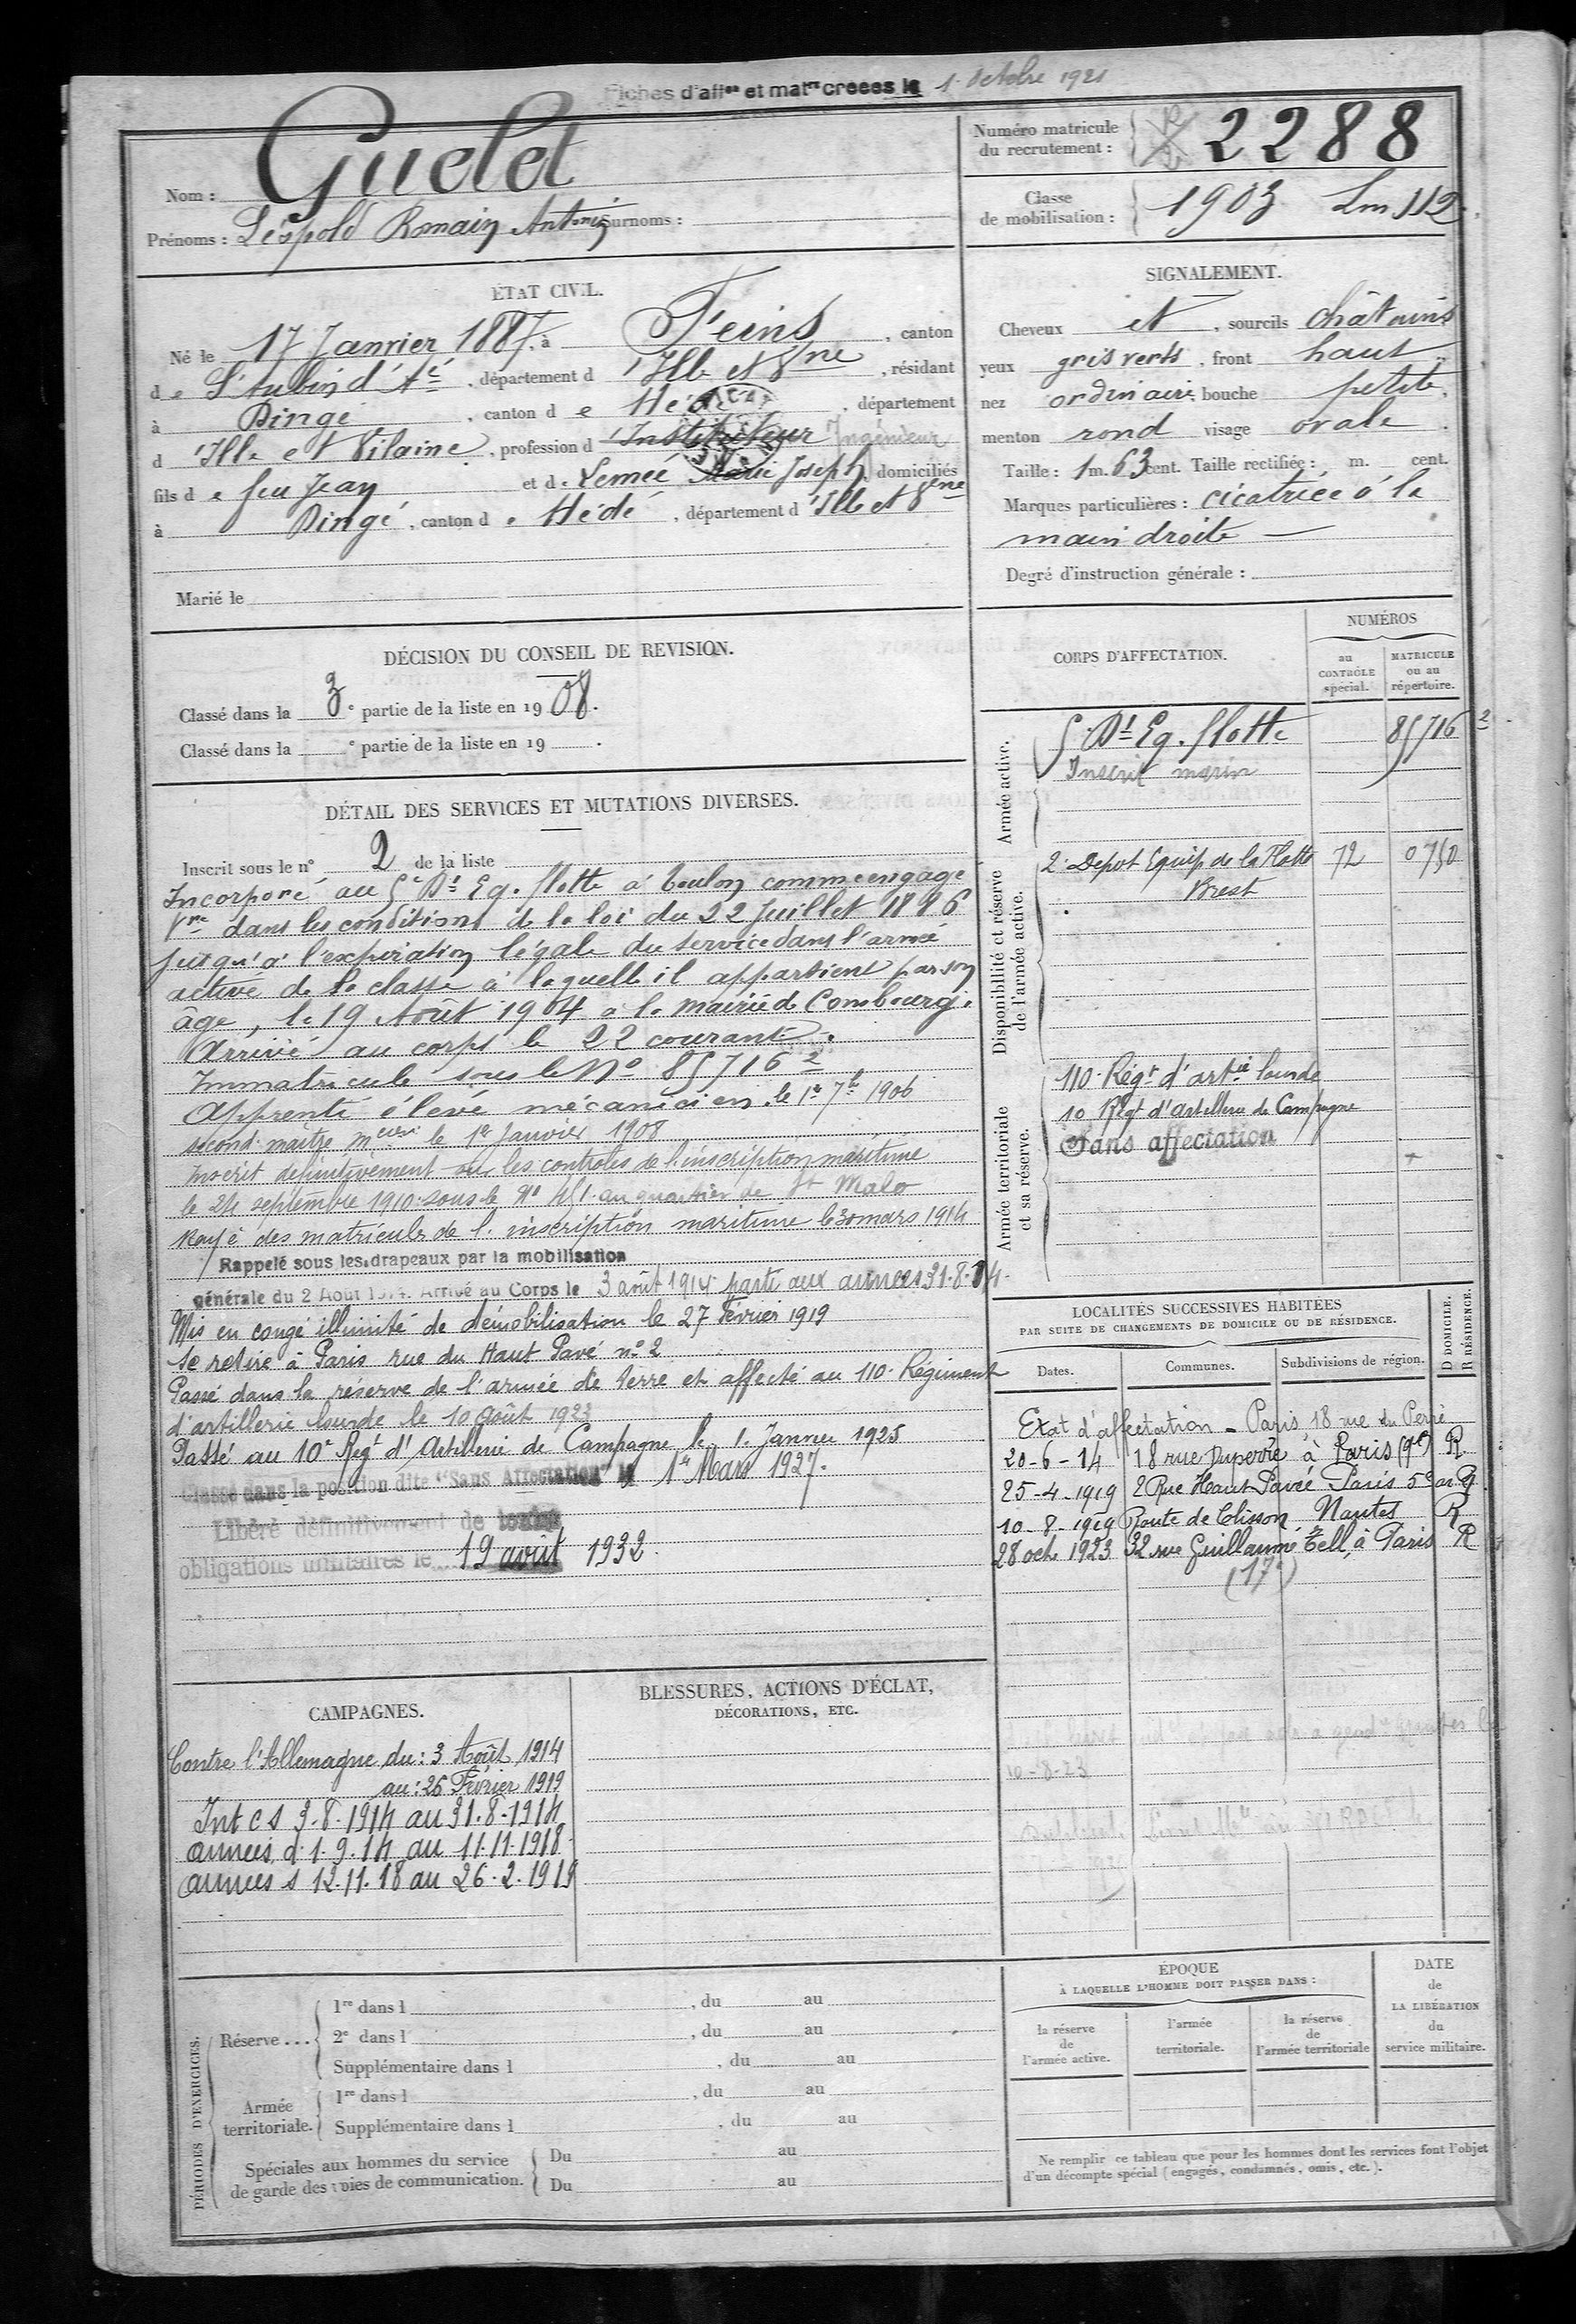 Fiches d'affon et matre creees le 1. Octobre 1921
Nom : Guelet
Prénoms : Léopold Romain Antonin Surnoms :
Numéro matricule du recrutement : 2288
Classe de mobilisation : 1903 Lm 112
ÉTAT CIVIL.
Né le 17 Janvier 1887, à Feins, canton
de St Aubin d'Aé, département d'Ille et Vne, résidant
à Dingé, canton de Hédé, département
d'Ille et Vilaine, profession d'Instituteur Ingénieur
fils de feu Jean et de Lemeé Marie Joseph, domiciliés
à Dingé, canton de Hédé, département d'Ille et Vene
Marié le
SIGNALEMENT.
Cheveux et, sourcils châtains
yeux gris verts, front haut
nez ordinaire bouche petite,
menton rond visage ovale.
Taille : 1 m. 63 cent. Taille rectifiée : m. cent.
Marques particulières : cicatrice à la
main droite —
Degré d'instruction générale :
DÉCISION DU CONSEIL DE REVISION.
Classé dans la 3e partie de la liste en 1908.
Classé dans la e partie de la liste en 19 .
DÉTAIL DES SERVICES ET MUTATIONS DIVERSES.
Inscrit sous le n° 2 de la liste
Incorporé au 5e Dt Eq. flotte à Toulon comme engagé
Vre dans les conditions de la loi du 22 Juillet 1896
jusqu'à l'expiration légale du service dans l'armée
active de la classe à laquelle il appartient par son
âge, le 19 Août 1904 à la mairie de Combourg.
Arrivé au corps le 22 courant.
Immatriculé sous le No 85716 2
Apprenti élève mécanicien le 1er 7bre 1906
second maître mcien le 1er Janvier 1908
Inscrit définitivement sur les contrôles de l'inscription maritime
le 24 septembre 1910 sous le No 451 au quartier de St Malo
Rayé des matricules de l'inscription maritime le 30 mars 1914
Rappelé sous les drapeaux par la mobilisation
générale du 2 Août 1914. Arrivé au Corps le 3 août 1914 parti aux armées 31.8.14.
Mis en congé illimité de démobilisation le 27 Février 1919
se retire à Paris rue du Haut Pavé no 2
Passé dans la réserve de l'armée de terre et affecté au 110e Régiment
d'artillerie lourde le 10 Août 1923
Passé au 10e Regt d'Artillerie de Campagne le 1. Janvier 1925
Classé dans la position dite "Sans Affectation" le 1er Mars 1927.
Libéré définitivement de toutes
obligations militaires le 19 août 1932.
CORPS D'AFFECTATION.
NUMÉROS
au CONTRÔLE spécial.
MATRICULE ou au répertoire.
Armée active.
5e Dt Eq. flotte 85716 2
Inscrit marin
Disponibilité et réserve de l'armée active.
2e Depot Equip de la Flotte 72 0750
Brest
Armée territoriale et sa réserve.
110e Régt d'artie lourde
10 Régt d'artillerie de Campagne
Sans affectation
LOCALITÉS SUCCESSIVES HABITÉES
PAR SUITE DE CHANGEMENTS DE DOMICILE OU DE RÉSIDENCE.
Dates. Communes. Subdivisions de région. D DOMICILE. R RÉSIDENCE.
Etat d'affectation - Paris, 18 rue du Perré
20-6-14 18 rue Duperré à Paris (9e) R
25-4-1919 2 Rue Haut Pavée Paris 5e ar. R
10-8-1919 Route de Clisson, Nantes R
28 oct. 1923 32 rue Guillaume Tell, à Paris R
(17e)
10-8-23
CAMPAGNES.
Contre l'Allemagne du : 3 Août 1914
au : 26 Février 1919
Int C S 3.8.1914 au 31.8.1914
armées d. 1.9.14 au 11.11.1918
armées s 12.11.18 au 26.2.1919
BLESSURES, ACTIONS D'ÉCLAT,
DÉCORATIONS, ETC.
PÉRIODES D'EXERCICES.
Réserve ...
1re dans l , du au
2e dans l , du au
Supplémentaire dans l , du au
Armée territoriale.
1re dans l , du au
Supplémentaire dans l , du au
Spéciales aux hommes du service
de garde des voies de communication.
Du au
Du au
ÉPOQUE
À LAQUELLE L'HOMME DOIT PASSER DANS :
la réserve de l'armée active.
l'armée territoriale.
la réserve de l'armée territoriale
DATE de LA LIBÉRATION du service militaire.
Ne remplir ce tableau que pour les hommes dont les services font l'objet
d'un décompte spécial (engagés, condamnés, omis, etc.).